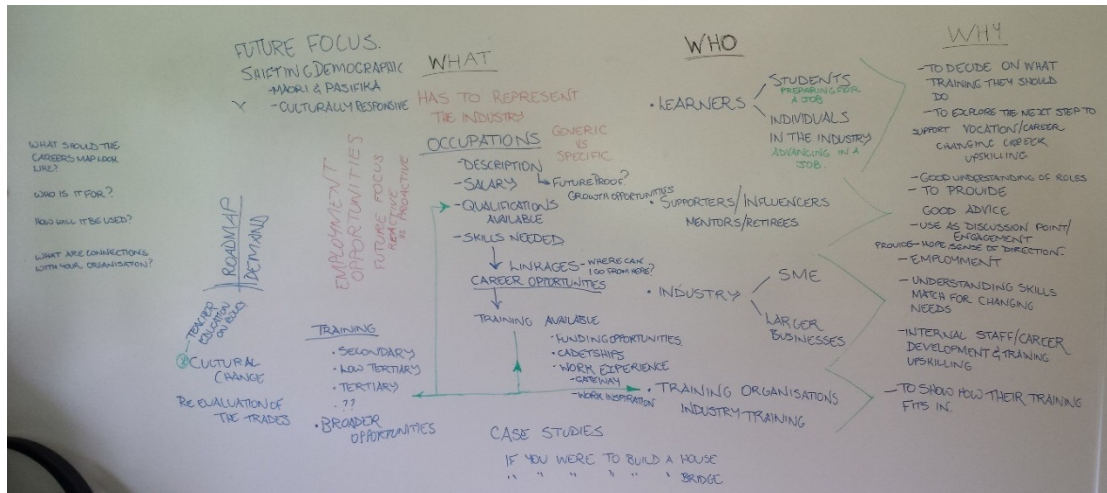 WHAT SHOULD THE
CAREERS MAP LOOK
LIKE?
WHO IS IT FOR?
HOW WILL IT BE USED?
WHAT ARE CONNECTIONS
WITH YOUR ORGANISATION?
FUTURE FOCUS.
SHIFTING DEMOGRAPHIC
-MAORI & PASIFIKA
-CULTURALLY RESPONSIVE
ROADMAP
DEMAND
-TEACHER
EDUCATION
ON
CULTURAL
CHANGE
RE EVALUATION OF
THE TRADES
EMPLOYMENT
OPPORTUNITIES
FUTURE FOCUS
REACTIVE
vs PROACTIVE
TRAINING
• SECONDARY
• LOW TERTIARY
• TERTIARY
• ??
• BROADER
OPPORTUNITIES
WHAT
HAS TO REPRESENT
THE INDUSTRY
OCCUPATIONS
GENERIC
VS
SPECIFIC
-DESCRIPTION
-SALARY
FUTURE PROOF?
GROWTH OPPORTUNITIES
-QUALIFICATIONS
AVAILABLE
-SKILLS NEEDED
LINKAGES-WHERE CAN
I GO FROM HERE?
CAREER OPPORTUNITIES
TRAINING AVAILABLE
• FUNDING OPPORTUNITIES
• CADETSHIPS
• WORK EXPERIENCE
-GATEWAY
-WORK INSPIRATION
CASE STUDIES
IF YOU WERE TO BUILD A HOUSE
" " " " " " BRIDGE
WHO
• LEARNERS
STUDENTS
PREPARING FOR
A JOB
INDIVIDUALS
IN THE INDUSTRY
ADVANCING IN A
JOB.
• SUPPORTERS/INFLUENCERS
MENTORS/RETIREES
• INDUSTRY
SME
LARGER
BUSINESSES
• TRAINING ORGANISATIONS
INDUSTRY TRAINING
WHY
-TO DECIDE ON WHAT
TRAINING THEY SHOULD
DO
-TO EXPLORE THE NEXT STEP TO
SUPPORT VOCATION/CAREER
CHANGING CAREER
UPSKILLING
-GOOD UNDERSTANDING OF ROLES
-TO PROVIDE
GOOD ADVICE
-USE AS DISCUSSION POINT/
ENGAGEMENT
PROVIDE-HOPE, SENSE OF DIRECTION.
-EMPLOYMENT
-UNDERSTANDING SKILLS
MATCH FOR CHANGING
NEEDS
-INTERNAL STAFF/CAREER
DEVELOPMENT & TRAINING
UPSKILLING
-TO SHOW HOW THEIR TRAINING
FITS IN.